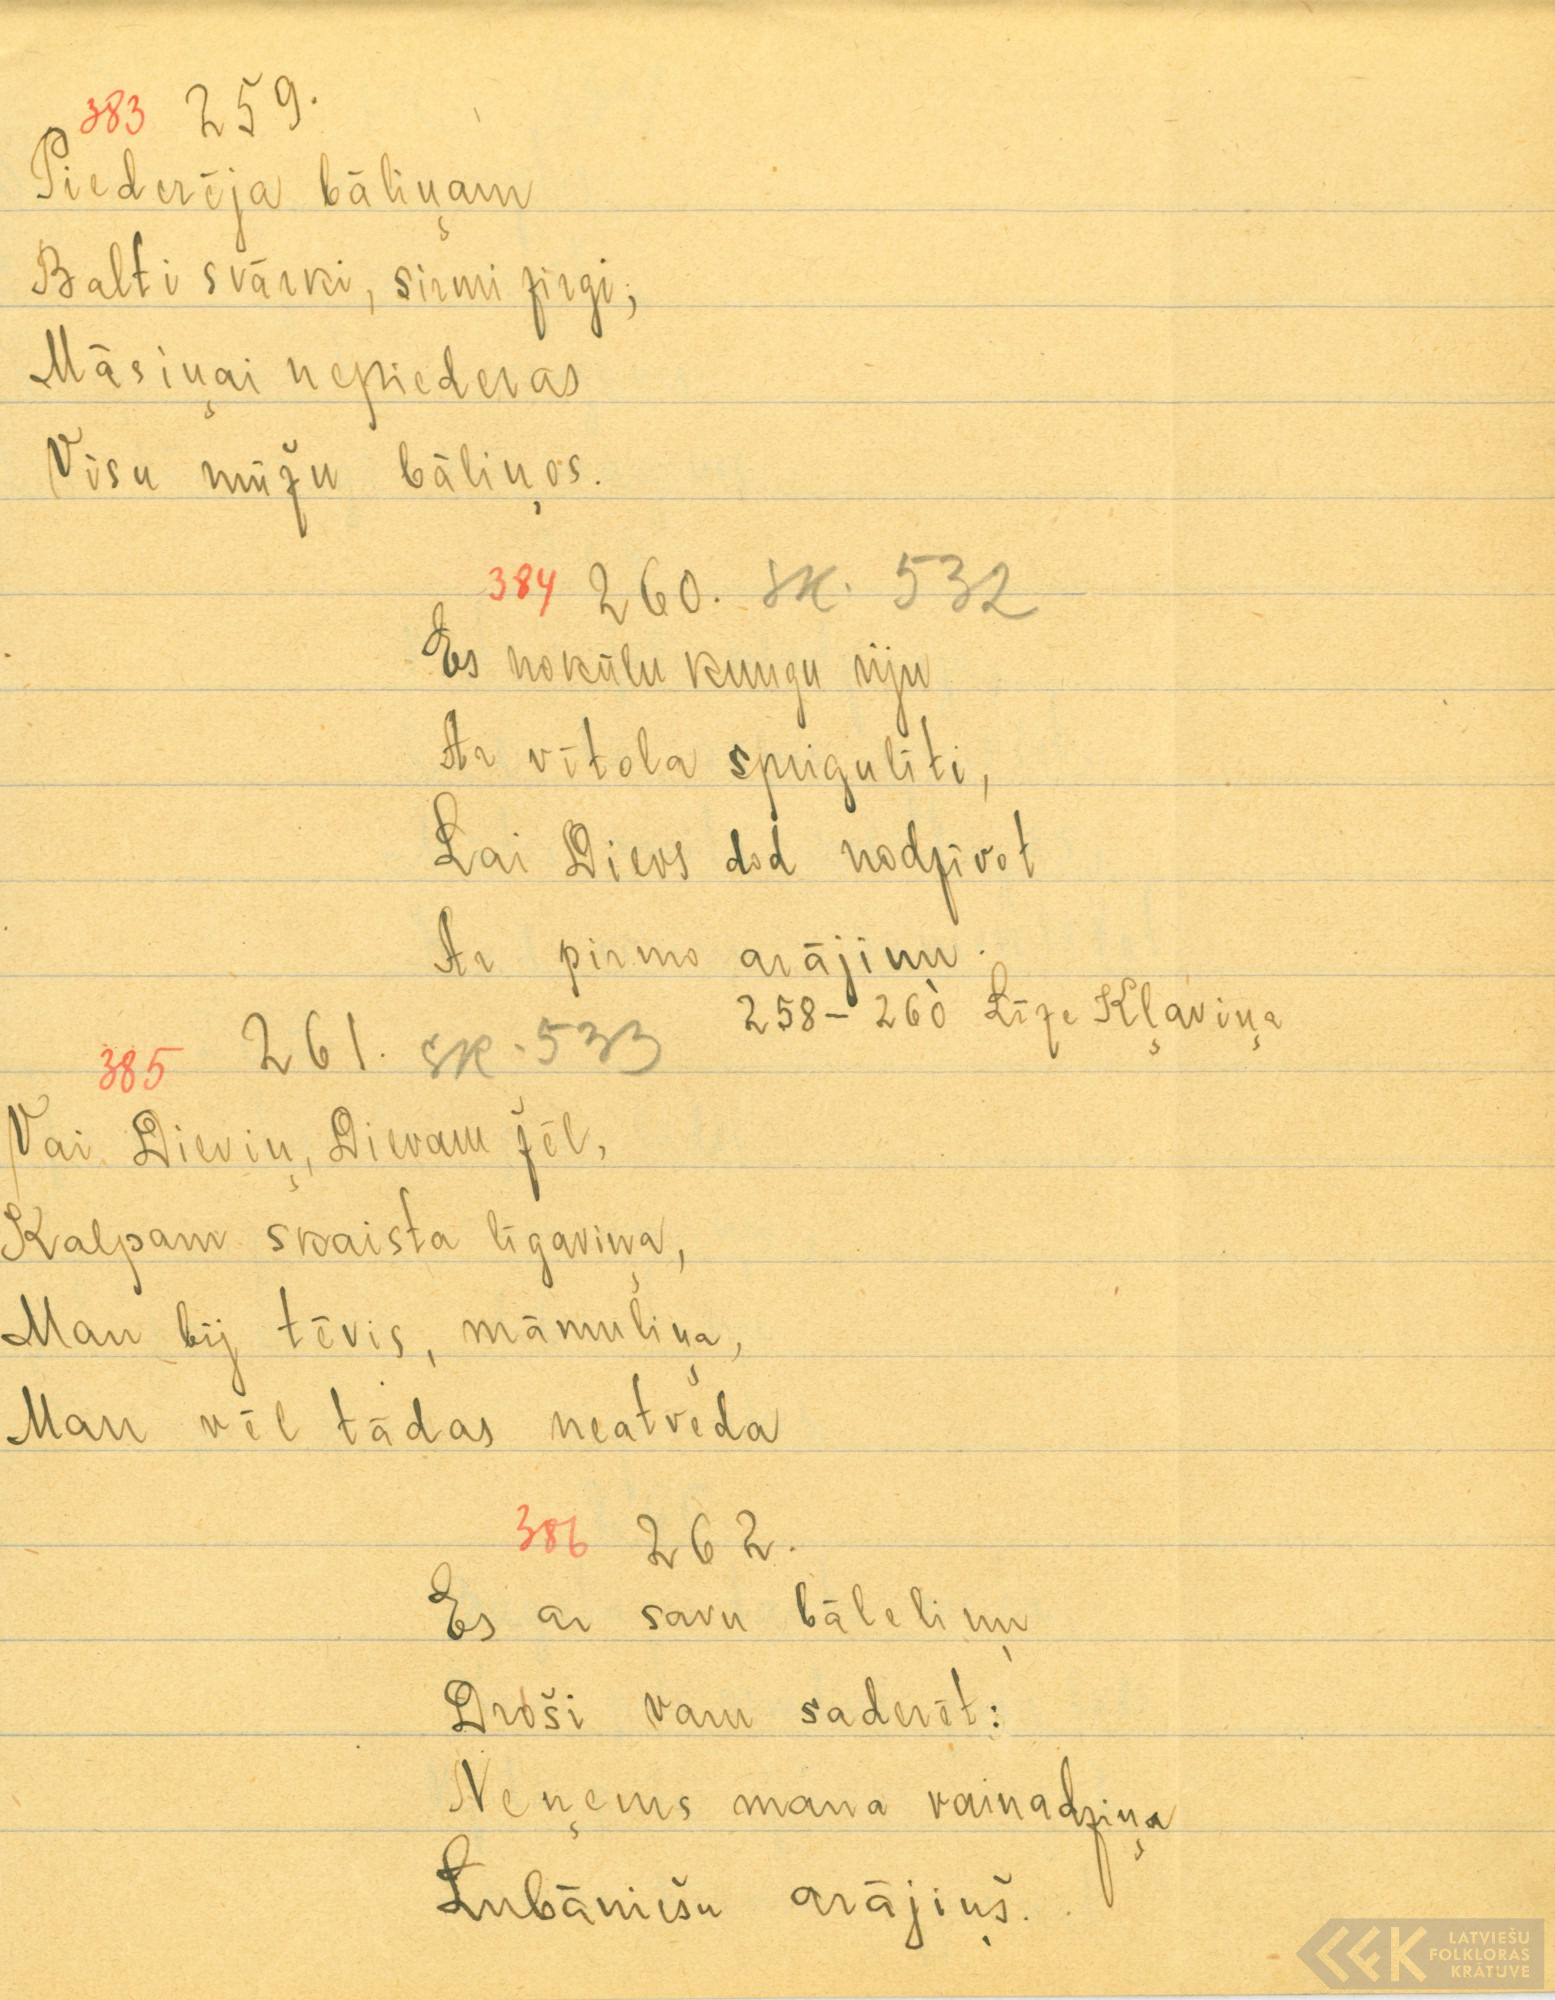 383 259.
Piederēja bāliņam
Balti svārki, sirmi zirgi;
Māsiņai nepiederas
Visu mūžu bāliņos.
384 260. šk. 532
Es nokūlu kungu riju
Ar vītola spriguliti,
Lai Dievs dod nodzīvot
Ar pirmo arājiņu.
258–260 Līze Kļaviņa
385 261. šk. 533
Vai Dieviņ, Dievam žēl,
Kalpam skaista līgaviņa,
Man bij tēvis, māmuliņa,
Man vēl tādas neatveda
386 262.
Es ar savu bāleliņu
Droši varu saderēt:
Neņems mana vainadziņa
Lubāniešu arājiņš.
LATVIEŠU
FOLKLORAS
KRĀTUVE